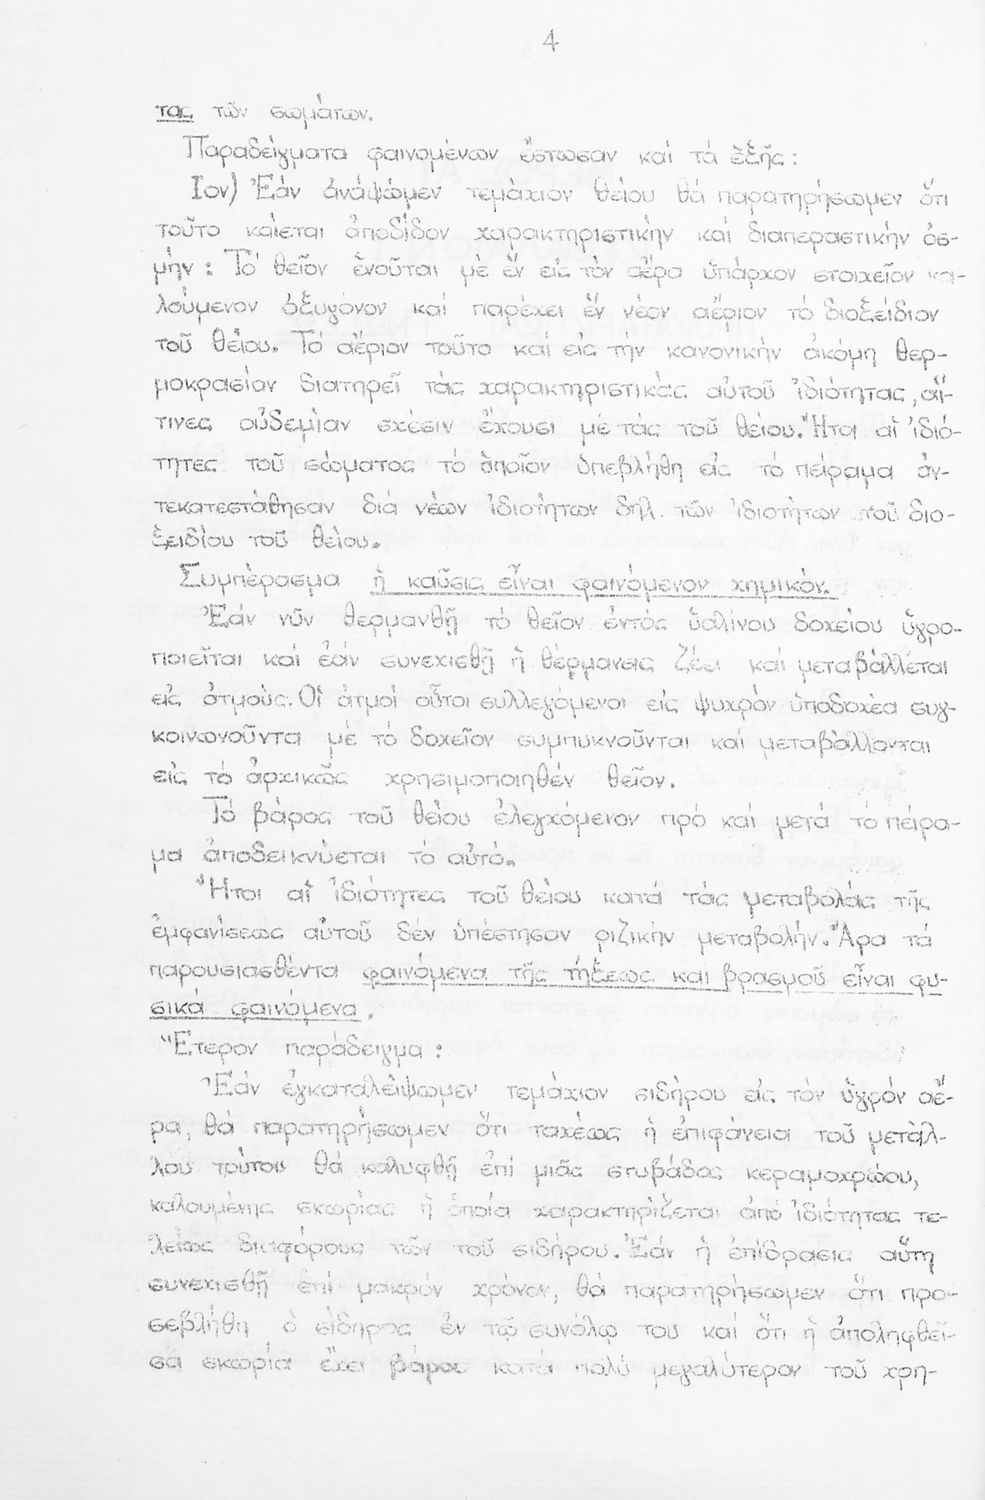 4
τας τῶν σωμάτων.
Παραδείγματα φαινομένων ἔστωσαν καί τά ἑξῆς:
Ιον) Ἐάν ἀνάψωμεν τεμάχιον θείου θά παρατηρήσωμεν ὅτι
τοῦτο καίεται ἀποδίδον χαρακτηριστικήν καί διαπεραστικήν ὀσ-
μήν: Τό θεῖον ἑνοῦται μέ ἕν εἰς τόν ἀέρα ὑπάρχον στοιχεῖον κα-
λούμενον ὀξυγόνον καί παρέχει ἕν νέον ἀέριον τό διοξείδιον
τοῦ θείου. Τό ἀέριον τοῦτο καί εἰς τήν κανονικήν ἀκόμη θερ-
μοκρασίαν διατηρεῖ τάς χαρακτηριστικάς αὐτοῦ ἰδιότητας, αἵ-
τινες οὐδεμίαν σχέσιν ἔχουσι μέ τάς τοῦ θείου. Ἤτοι αἱ ἰδιό-
τητες τοῦ σώματος τό ὁποῖον ὑπεβλήθη εἰς τό πείραμα ἀν-
τεκατεστάθησαν διά νέων ἰδιοτήτων δηλ. τῶν ἰδιοτήτων τοῦ διο-
ξειδίου τοῦ θείου.
Συμπέρασμα ἡ καῦσις εἶναι φαινόμενον χημικόν.
Ἐάν νῦν θερμανθῇ τό θεῖον ἐντός ὑαλίνου δοχείου ὑγρο-
ποιεῖται καί ἐάν συνεχισθῇ ἡ θέρμανσις ζέει καί μεταβάλλεται
εἰς ἀτμούς. Οἱ ἀτμοί οὗτοι συλλεγόμενοι εἰς ψυχρόν ὑποδοχέα συγ-
κοινωνοῦντα μέ τό δοχεῖον συμπυκνοῦνται καί μεταβάλλονται
εἰς τό ἀρχικῶς χρησιμοποιηθέν θεῖον.
Τό βάρος τοῦ θείου ἐλεγχόμενον πρό καί μετά τό πείρα-
μα ἀποδεικνύεται τό αὐτό.
Ἤτοι αἱ ἰδιότητες τοῦ θείου κατά τάς μεταβολάς τῆς
ἐμφανίσεως αὐτοῦ δέν ὑπέστησαν ριζικήν μεταβολήν. Ἄρα τά
παρουσιασθέντα φαινόμενα τῆς τήξεως καί βρασμοῦ εἶναι φυ-
σικά φαινόμενα.
Ἕτερον παράδειγμα:
Ἐάν ἐγκαταλείψωμεν τεμάχιον σιδήρου εἰς τόν ὑγρόν ἀέ-
ρα, θά παρατηρήσωμεν ὅτι ταχέως ἡ ἐπιφάνεια τοῦ μετάλ-
λου τούτου θά καλυφθῇ ἐπί μιᾶς στυβάδος κεραμοχρώου,
καλουμένης σκωρίας ἡ ὁποία χαρακτηρίζεται ἀπό ἰδιότητας τε-
λείως διαφόρους τῶν τοῦ σιδήρου. Ἐάν ἡ ἐπίδρασις αὕτη
συνεχισθῇ ἐπί μακρόν χρόνον, θά παρατηρήσωμεν ὅτι προ-
σεβλήθη ὁ σίδηρος ἐν τῷ συνόλῳ του καί ὅτι ἡ ἀποληφθεῖ-
σα σκωρία ἔχει βάρος κατά πολύ μεγαλύτερον τοῦ χρη-